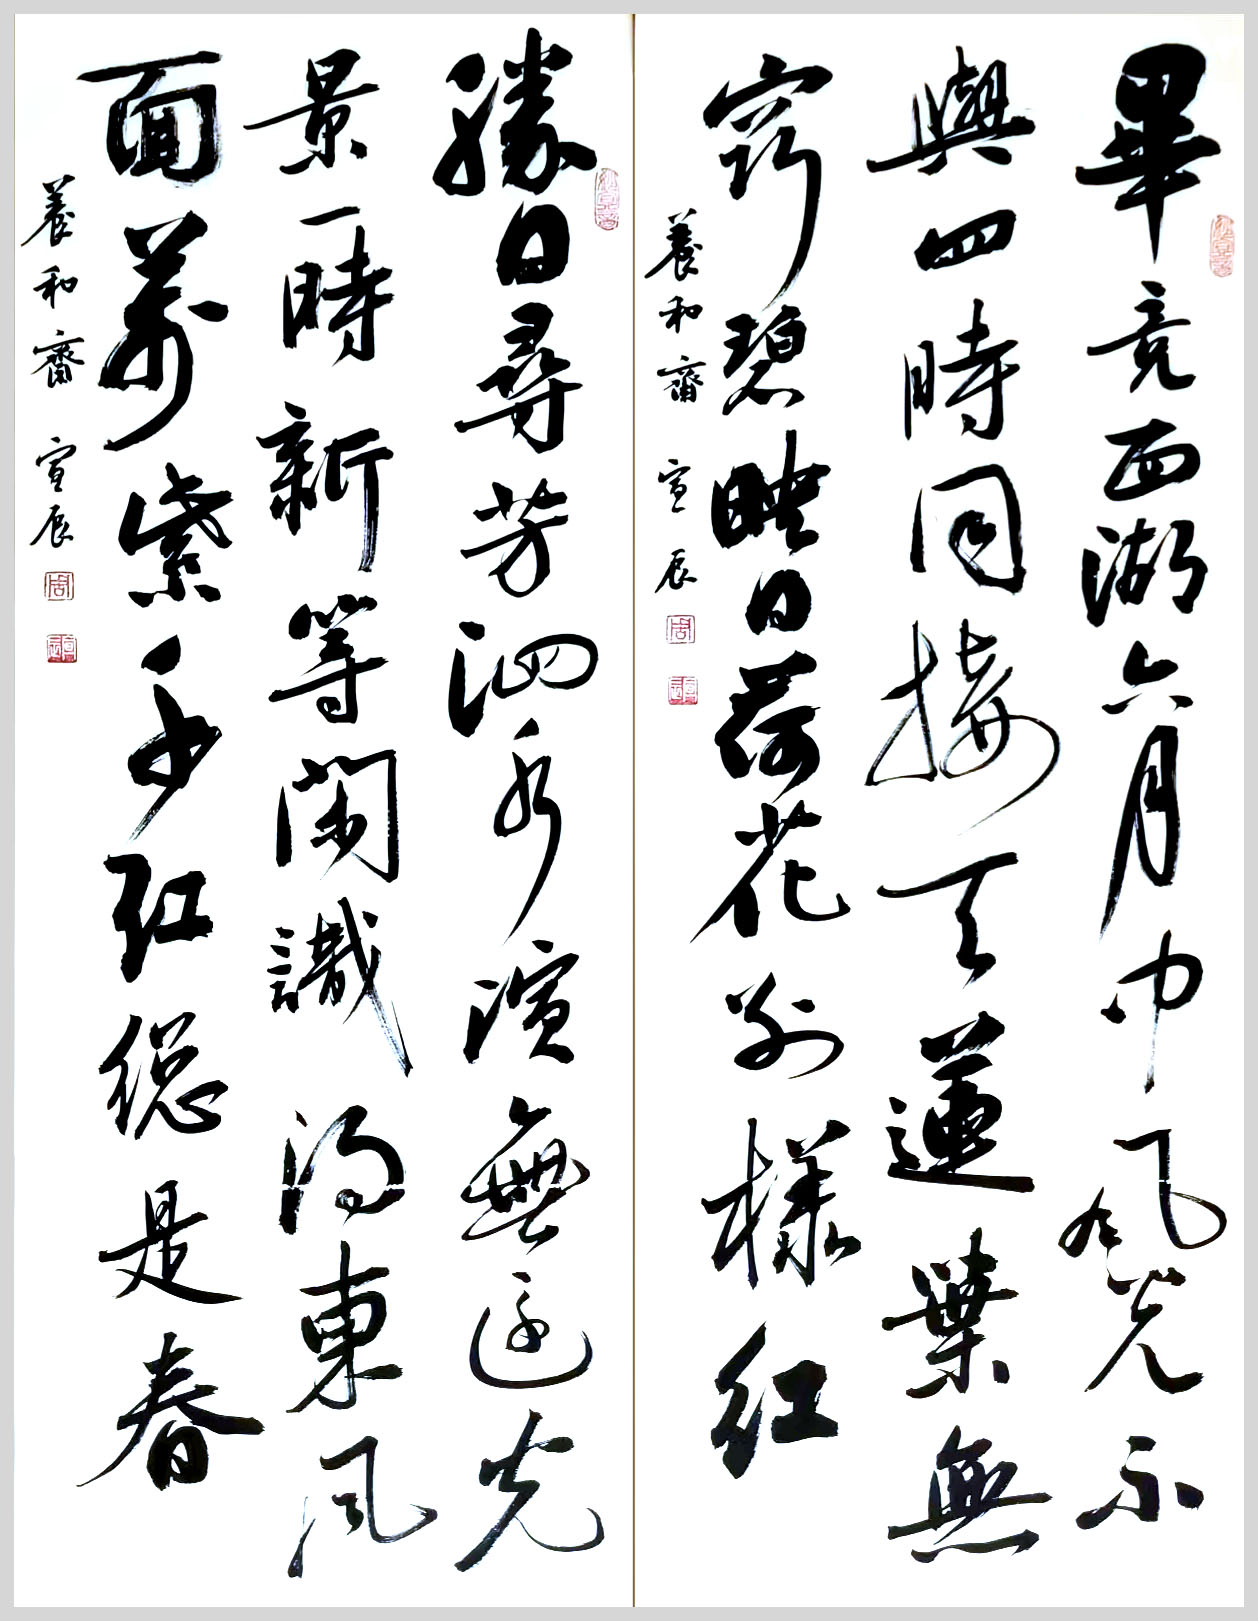 畢竟西湖六月中風光不
與四時同接天蓮葉無
窮碧映日荷花別樣紅
養和齋 宣辰
勝日尋芳泗水濱無邊光
景一時新等閑識得東風
面萬紫千红總是春
養和齋 宣辰